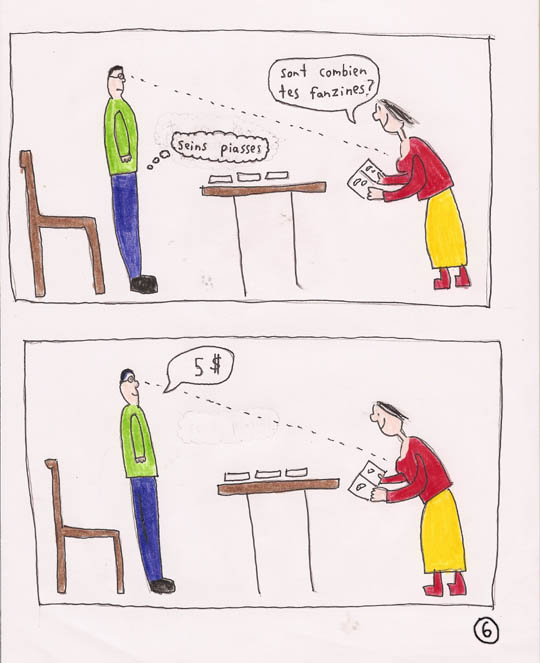 sont combien
tes fanzines?
seins piasses
5 $
6